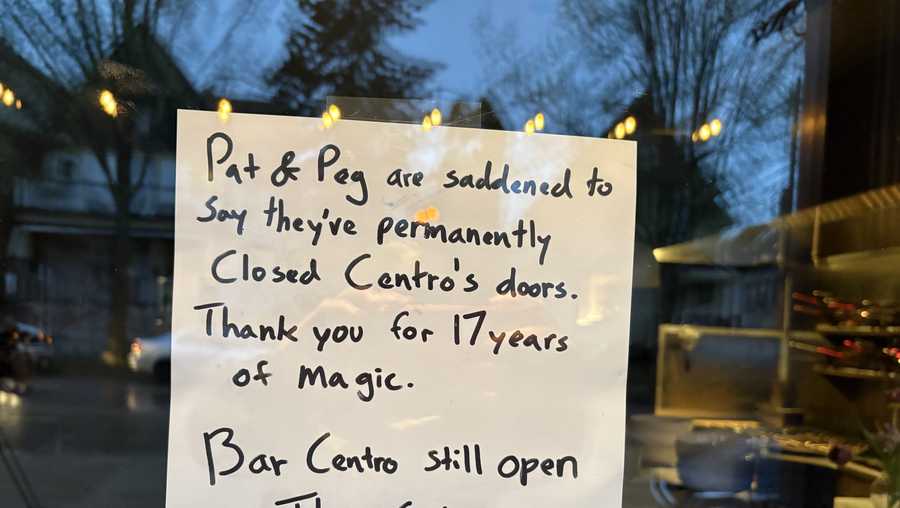 Pat & Peg are saddened to
say they've permanently
Closed Centro's doors.
Thank you for 17 years
of magic.
Bar Centro still open